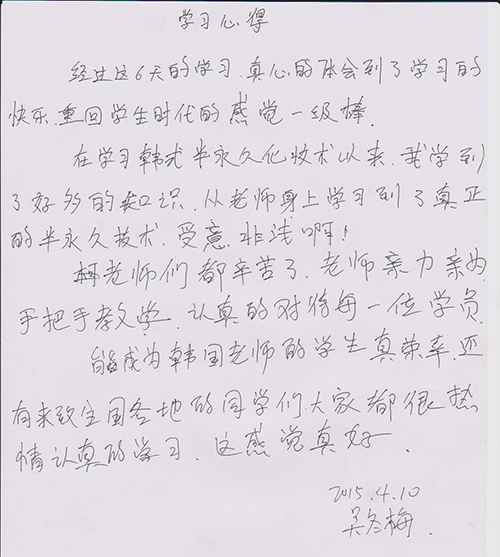 学习心得
经过这6天的学习.真心的体会到了学习的
快乐.重回学生时代的感觉一级棒.
在学习韩式半永久化妆术以来.我学到
了好多的知识.从老师身上学习到了真正
的半永久技术.受意.非浅啊!
老师们都辛苦了.老师亲力亲为
手把手教学.认真的对待每一位学员.
能成为韩国老师的学生真荣幸.还
有来致全国各地的同学们.大家都很热
情认真的学习.这感觉真好.
2015.4.10
吴冬梅